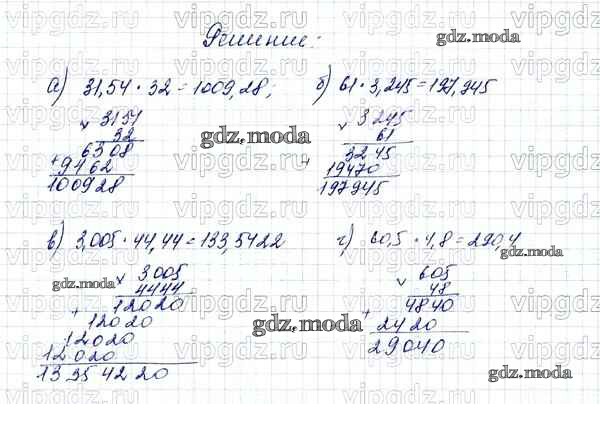 Решение:
а) 31,54 · 32 = 1009,28;
3154
32
6308
+ 9462
100928
б) 61 · 3,245 = 197,945
3245
61
3245
+ 19470
197945
в) 3,005 · 44,44 = 133,5422
3005
4444
12020
+ 12020
12020
12020
13354220
г) 60,5 · 4,8 = 290,4
605
48
4840
+ 2420
29040
gdz.moda
gdz.moda
gdz.moda
gdz.moda
gdz.moda
gdz.moda
vipgdz.ru